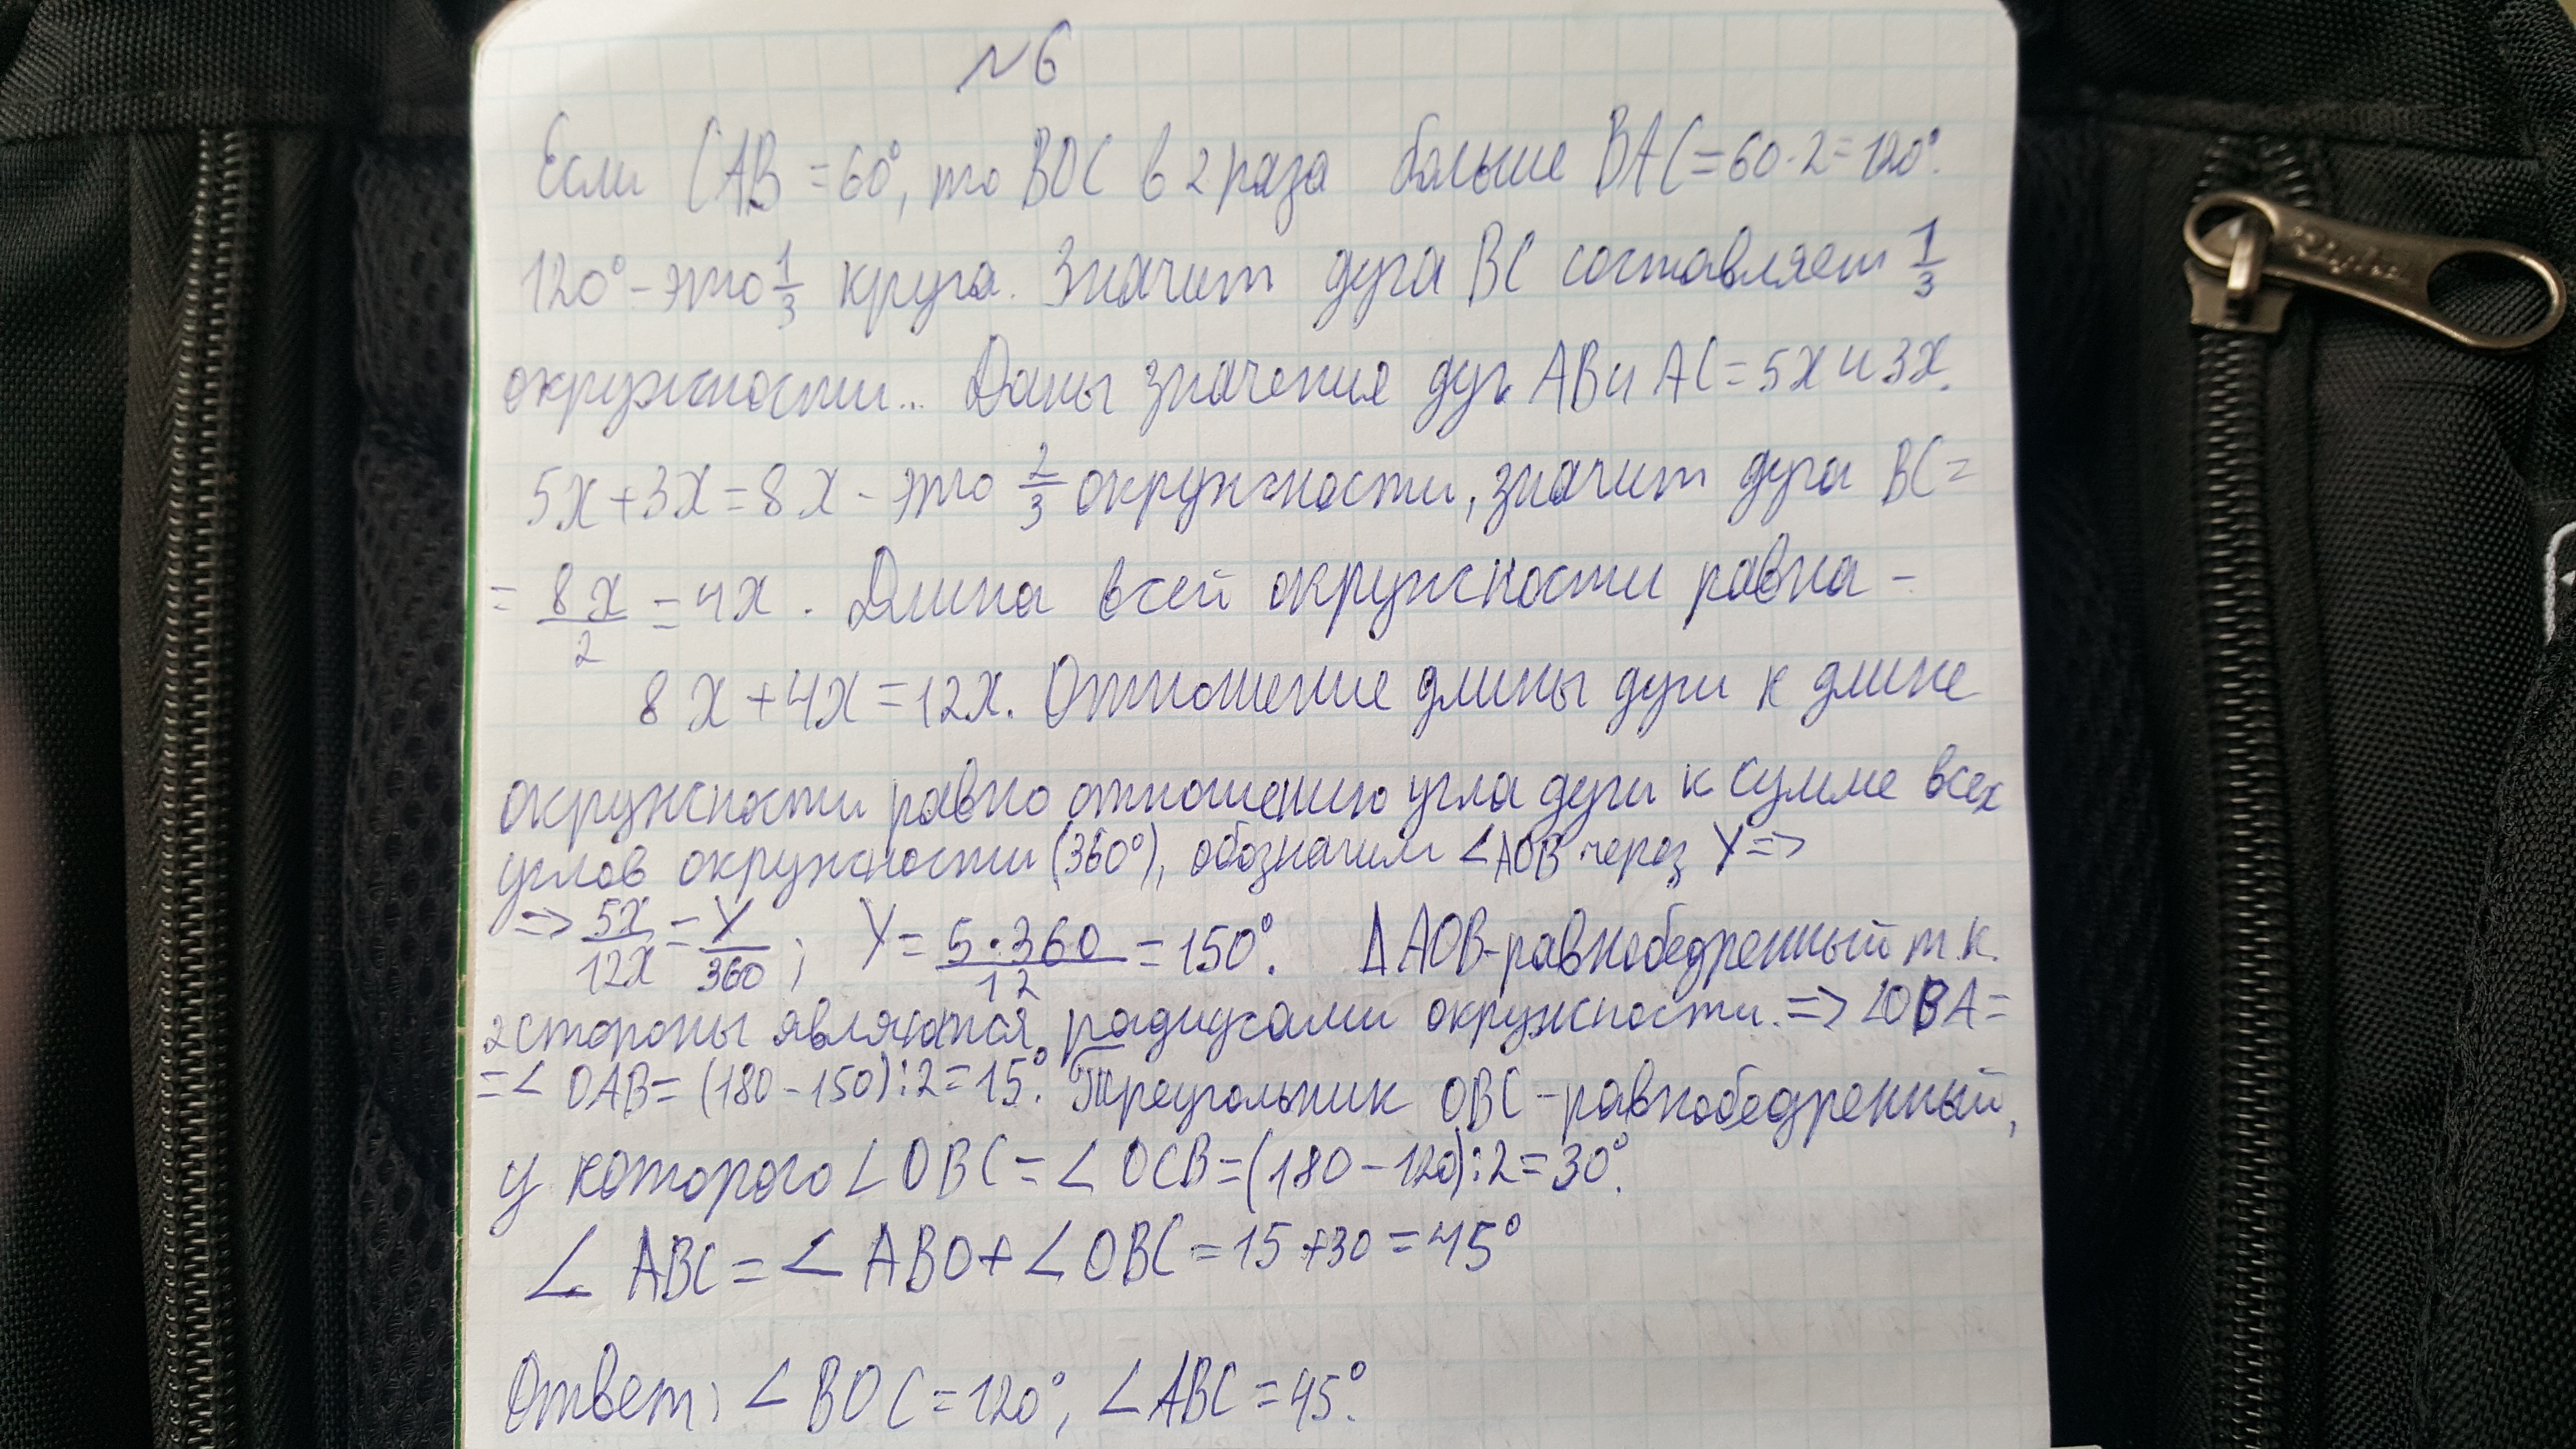 №6
Если ∠CAB = 60°, то BOC в 2 раза больше BAC = 60·2 = 120°.
120° - это 1/3 круга. Значит дуга BC составляет 1/3
окружности... Даны значение дуг AB и AC = 5x и 3x.
5x + 3x = 8x - это 2/3 окружности, значит дуга BC =
= 8x/2 = 4x. Длина всей окружности равна -
8x + 4x = 12x. Отношение длины дуги к длине
окружности равно отношению угла дуги к сумме всех
углов окружности (360°), обозначим ∠AOB через y =>
=> 5x/12x = y/360; y = 5·360/12 = 150°. Δ AOB-равнобедренный т.к.
2 стороны являются радиусами окружности. => ∠OBA =
= ∠ OAB = (180 - 150):2 = 15°. Треугольник OBC - равнобедренный,
у которого ∠OBC = ∠ OCB = (180 - 120):2 = 30°.
∠ ABC = ∠ ABO + ∠ OBC = 15 + 30 = 45°
Ответ: ∠ BOC = 120°, ∠ ABC = 45°.